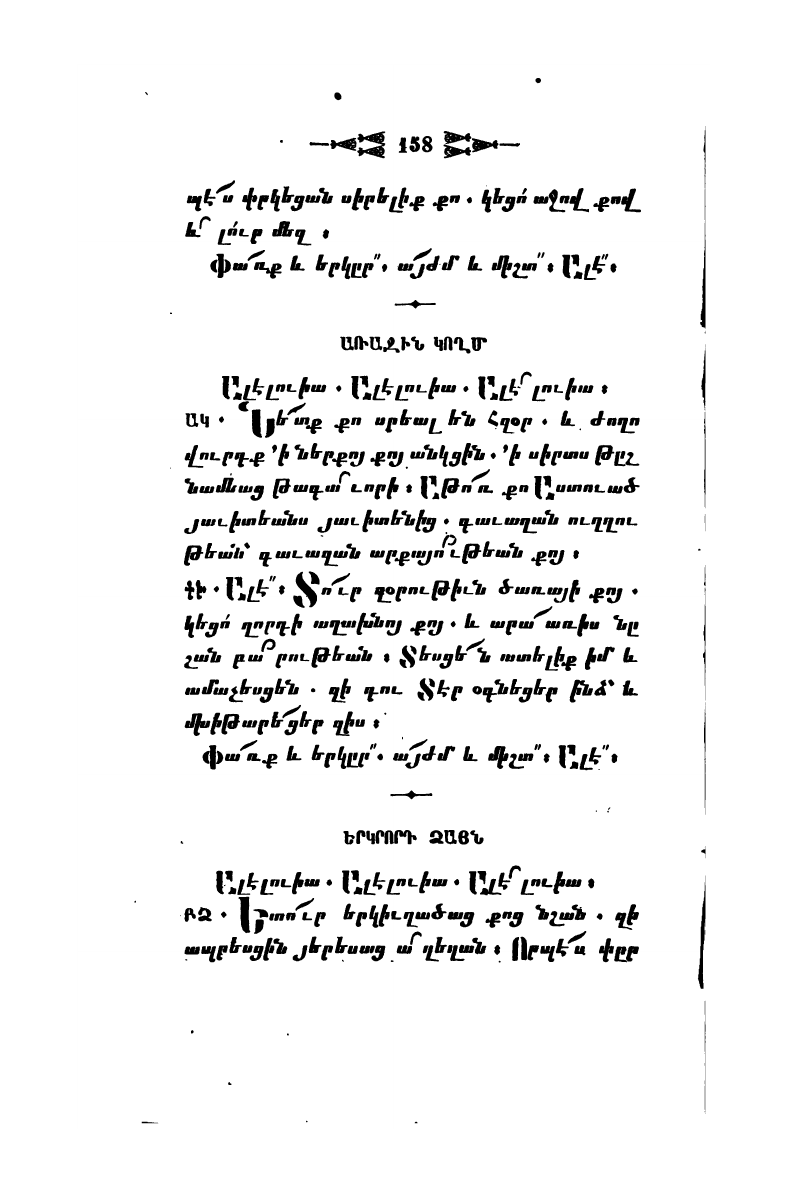 158
պէ՜ս փրկեցան սիրելիք քո. կեցո՛ աջով քով
և՟ լո՛ւր մեզ ։
Փա՜ռք և երկըր՞. ա՜յժմ և միշտ՞։ Ալէ՞։
ԱՌԱՋԻՆ ԿՈՂՄ
Ալէլուիա. Ալէլուիա. Ալէ՟լուիա ։
ԱԿ. Նե՜տք քո սրեալ են Հզօր. և ժողո
վուրդք ՚ի ներքոյ քոյ անկցին. ՚ի սիրտս թըշ
նամեաց թագա՜ւորի ։ Աթո՜ռ քո Աստուած
յաւիտեանս յաւիտենից. գաւազան ուղղու
թեան՝ գաւազան արքայո՟ւթեան քոյ ։
ԴԿ. Ալէ՞։ Տո՜ւր զօրութիւն ծառայի քոյ.
կեցո՛ զորդի աղախնոյ քոյ. և արա՜ առիս նը
շան բա՟րութեան ։ Տեսցե՜ն ատելիք իմ և
ամաչեսցեն. զի դու Տէր օգնեցեր ինձ՝ և
մխիթարե՜ցեր զիս ։
Փա՜ռք և երկըր՞. ա՜յժմ և միշտ՞։ Ալէ՞։
ԵՐԿՐՈՐԴ ՁԱՅՆ
Ալէլուիա. Ալէլուիա. Ալէ՟լուիա ։
ԲՁ. Ետո՜ւր երկիւղածաց քոց նշան. զի
ապրեսցին յերեսաց ա՟ղեղան ։ Որպէ՜ս փըր